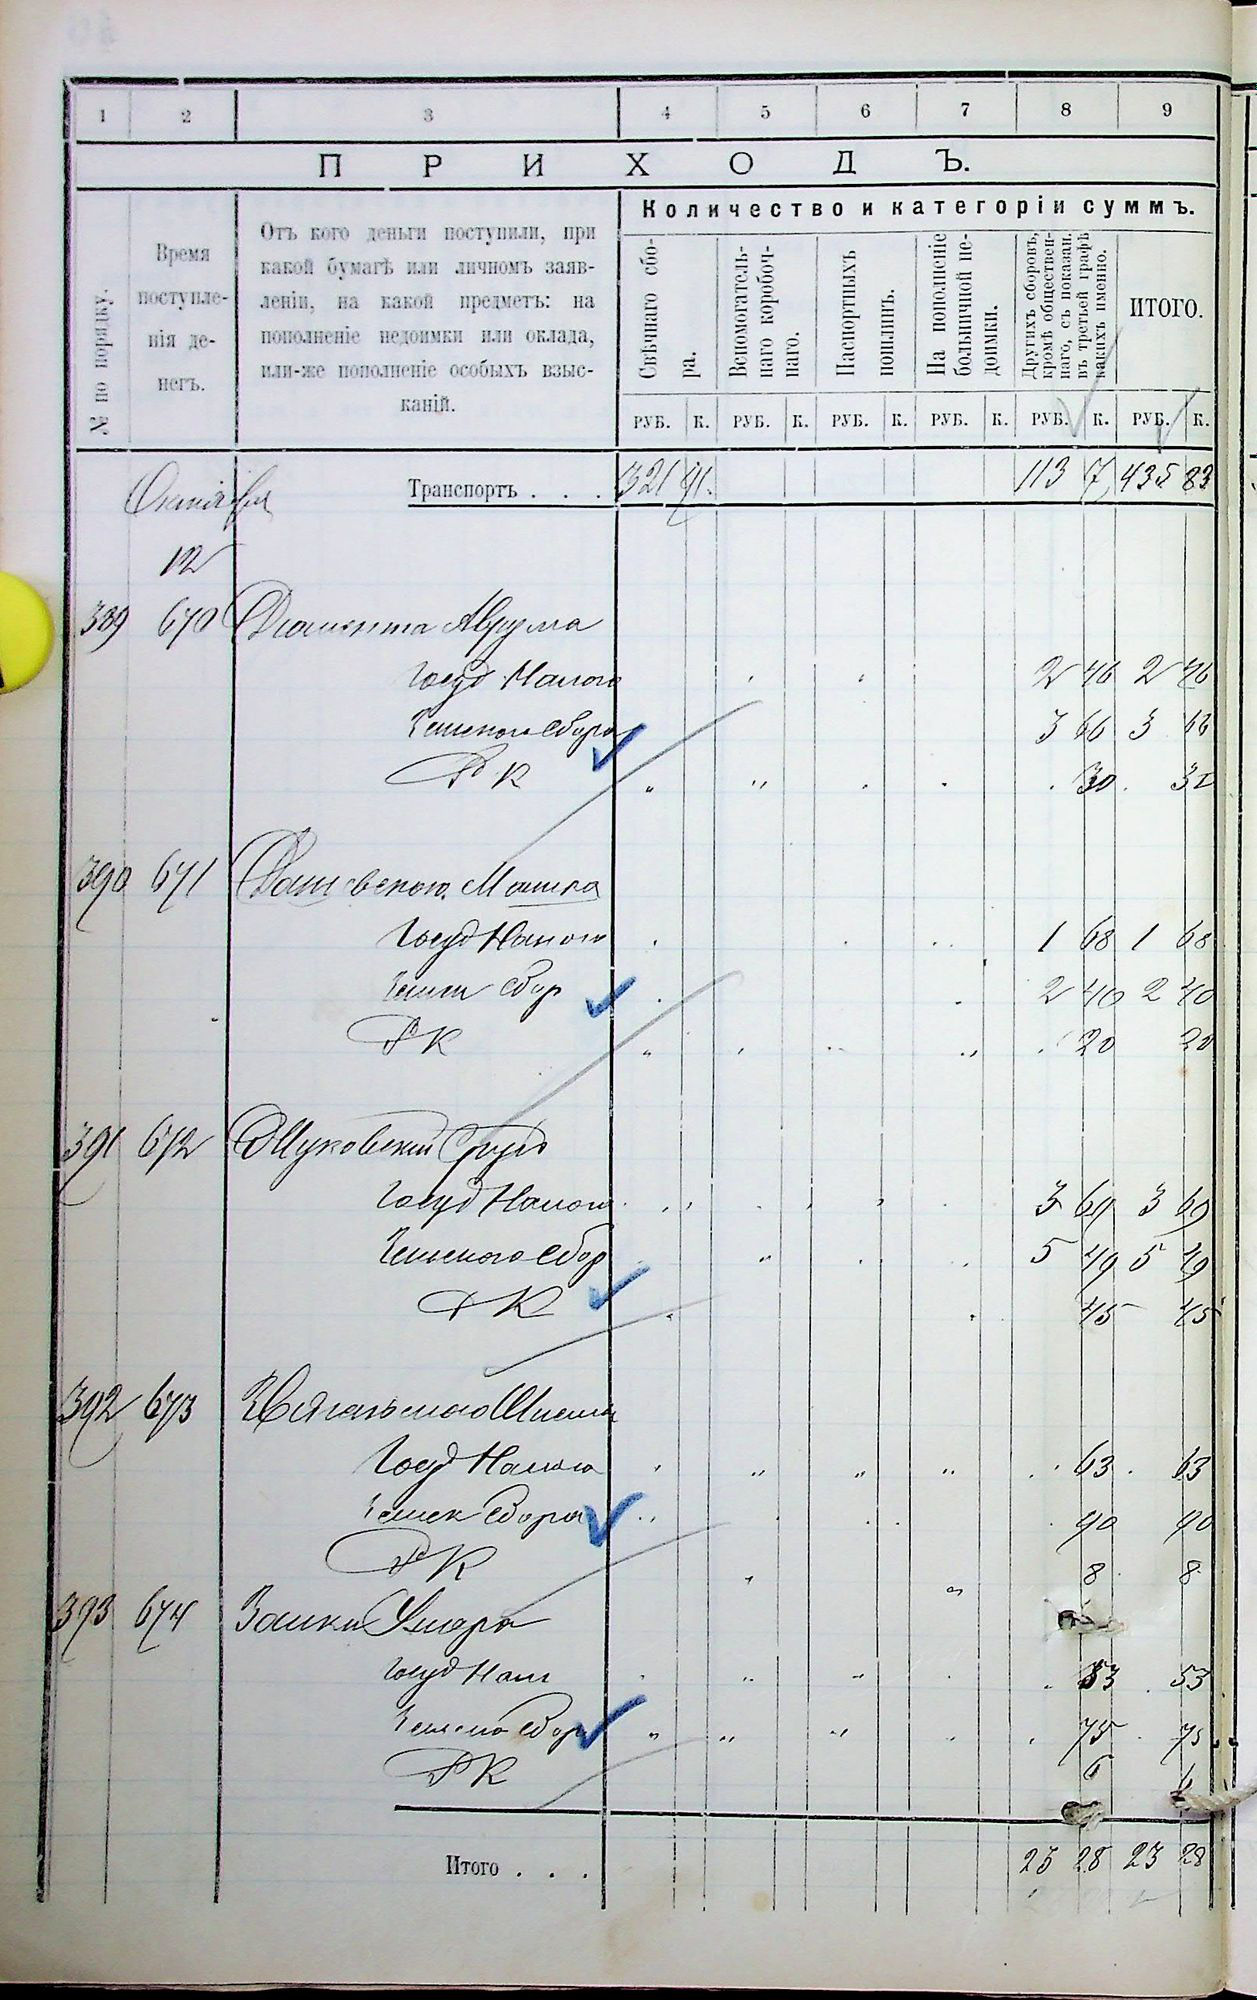 1 2 3 4 5 6 7 8 9
ПРИХОДЪ.
№ по порядку.
Время поступле-
нія де-
негъ.
Отъ кого деньги поступили, при
какой бумагѣ или личномъ заяв-
леніи, на какой предметъ: на
пополненіе недоимки или оклада,
или-же пополненіе особыхъ взыс-
каній.
Количество и категоріи суммъ.
Свѣчнаго сбо-
ра.
Вспомогатель-
наго коробоч-
наго.
Паспортныхъ
пошлинъ.
На пополненіе
больничной не-
доимки.
Другихъ сборовъ,
кромѣ обществен-
наго, съ показан.
въ третьей графѣ
какихъ именно.
ИТОГО.
РУБ. К. РУБ. К. РУБ. К. РУБ. К. РУБ. К. РУБ. К.
Октября Транспортъ . . . 321 91. 113 7 435 83
12
389 670 Диамента Аврума
Госуд Налога 2 46 2 46
Земского сбора 3 66 3 66
Р К 30 30
390 671 Мошка
Госуд Налога 1 68 1 68
Земск сбор 2 40 2 40
Р К 20 20
391 672
Госуд Налога 3 69 3 69
Земского сбор 5 49 5 49
Р К 45 45
392 673
Госуд Налога 63 63
Земск сбора 90 90
Р К 8 8
393 674 Заики
Госуд Нал 53 53
Земско сбор 75 75
Р К 6 6
Итого . . . 23 28 23 28